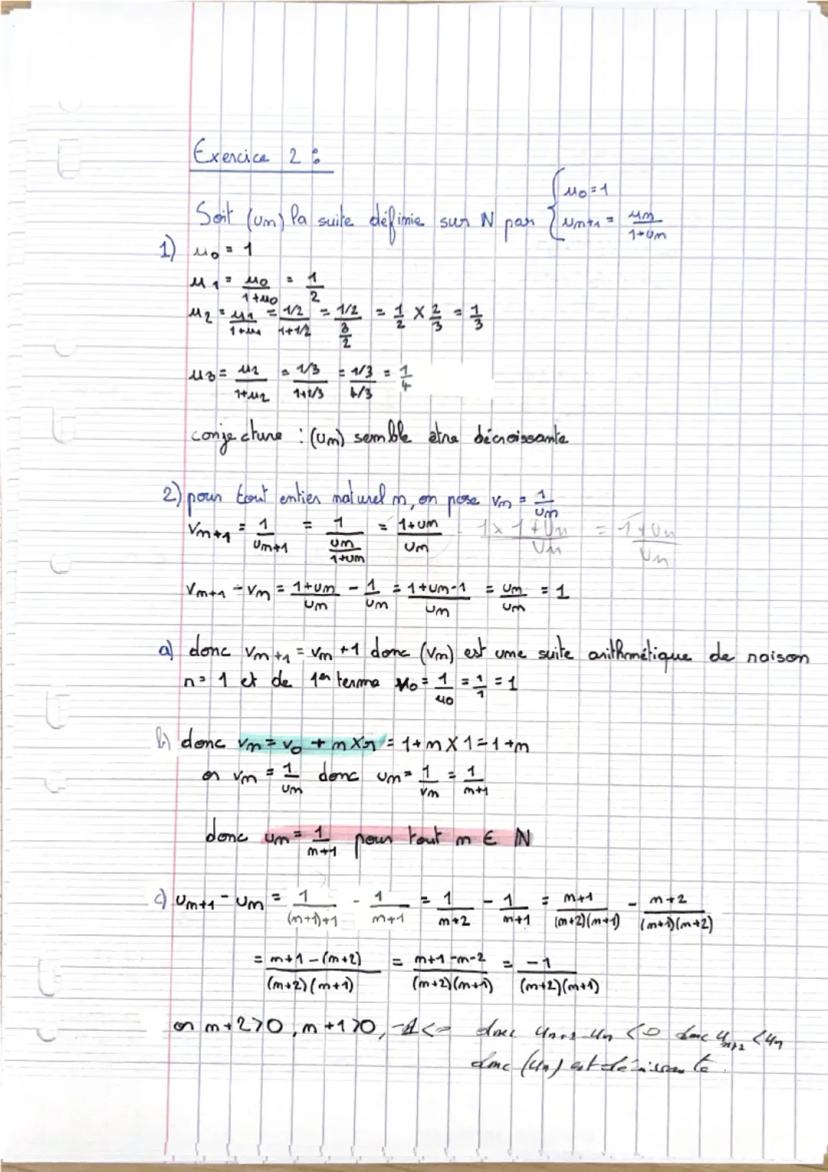 Exercice 2 :
Soit (un) la suite définie sur N par { u0 = 1
un+1 = un/(1+un)
1) u0 = 1
u1 = u0/(1+u0) = 1/2
u2 = u1/(1+u1) = (1/2)/(1+1/2) = (1/2)/(3/2) = 1/2 × 2/3 = 1/3
u3 = u2/(1+u2) = (1/3)/(1+1/3) = (1/3)/(4/3) = 1/4
conjecture : (un) semble être décroissante
2) pour tout entier naturel n, on pose vn = 1/un
vn+1 = 1/un+1 = 1/(un/(1+un)) = (1+un)/un - 1 × (1+un)/un = (1+un)/un
vn+1 - vn = (1+un)/un - 1/un = (1+un-1)/un = un/un = 1
a) donc vn+1 = vn + 1 donc (vn) est une suite arithmétique de raison
r = 1 et de 1er terme v0 = 1/u0 = 1/1 = 1
b) donc vn = v0 + n × r = 1 + n × 1 = 1 + n
or vn = 1/un donc un = 1/vn = 1/(n+1)
donc un = 1/(n+1) pour tout n ∈ N
c) un+1 - un = 1/((n+1)+1) - 1/(n+1) = 1/(n+2) - 1/(n+1) = (n+1)/((n+2)(n+1)) - (n+2)/((n+1)(n+2))
= (n+1-(n+2))/((n+2)(n+1)) = (n+1-n-2)/((n+2)(n+1)) = -1/((n+2)(n+1))
or n+2>0, n+1>0, -1<0 donc un+1-un <0 donc un+1 <un
donc (un) est décroissante.